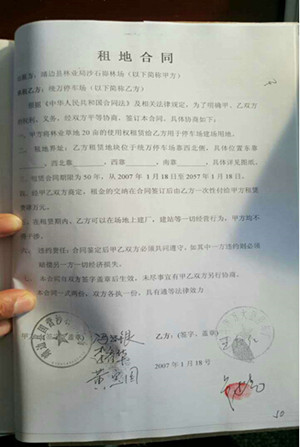 租地合同
甲方：靖边县林业局沙石峁林场（以下简称甲方）
乙方：地方停车场（以下简称乙方）
根据《中华人民共和国合同法》及相关法律规定，为了明确甲、乙双方
权利、义务，经双方平等协商，签订本合同，具体协商如下：
一、甲方将林业草地20亩的使用权租赁给乙方用于停车场建场用地。
租地界址：乙方租赁地块位于地方停车场靠西北侧，具体位置东靠
，西北靠，西靠，南靠，具体详见图纸。
租赁合同期限为50年，从2007年1月18日至2057年1月18日。
经甲乙双方商定，租金的交纳在合同签订后由乙方一次性付给甲方租赁
在租赁期内，乙方可以在场地上建厂、建站等一切经营行为，甲方均不
干涉。
违约责任：合同鉴定后甲乙双方必须共同遵守，如其中一方违约则必须
赔偿另一方一切经济损失。
本合同在双方签字盖章后生效，未尽事宜有甲乙双方另行协商。
本合同一式两份，双方各执一份，具有通等法律效力
乙方：（签字、盖章）
2007年1月18号